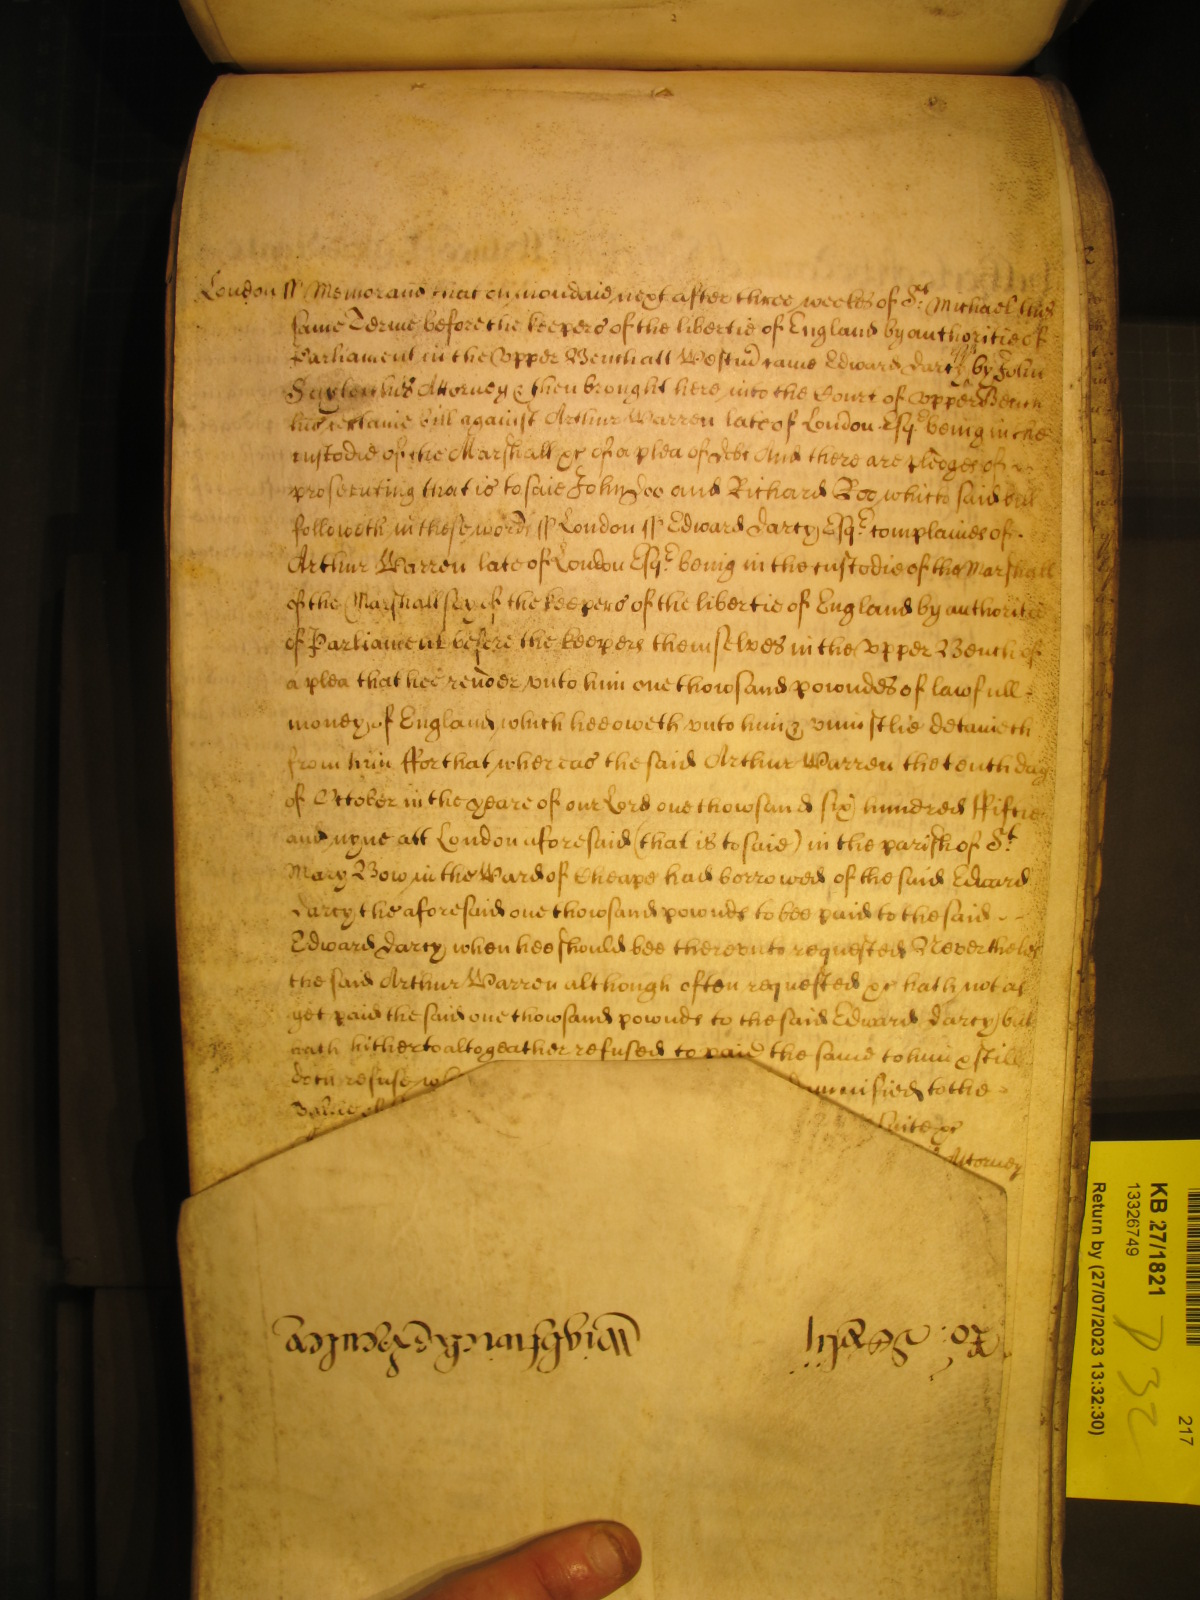 London ss Memorand that on mondaie next after three weekes of St. Michael this
same Terme before the keepers of the libertie of England by authoritie of
Parliament in the Upper Bench att Westmr came Edward Darcy Esqr by John
his Attorney & then brought here into the Court of Upper Bench
his certaine bill against Arthur Warren late of London Esqr. being in the
custodie of the Marshall &c of a plea of debt And there are pledges of
prosecuting that is to saie John Doo and Richard Roo which said bill
followeth in these words ss London ss Edward Darcy Esqr. complaines of
Arthur Warren late of London Esqr. being in the custodie of the Marshall
of the Marshallsey of the keepers of the libertie of England by authoritie
of Parliament before the keepers themselves in the Upper Bench of
a plea that hee render vnto him one thowsand powndes of lawfull
money of England which hee oweth vnto him & vniustlie detaineth
from him ffor that whereas the said Arthur Warren the tenth day
of October in the yeare of our Lord one thowsand six hundred ffiftie
and nyne att London aforesaid (that is to saie) in the parish of St.
Mary Bow in the Ward of Cheape had borrowed of the said Edward
Darcy the aforesaid one thowsand pownds to bee paid to the said
Edward Darcy when hee should bee therevnto requested Neverthelesse
the said Arthur Warren although often requested &c hath not as
yet paid the said one thowsand pownds to the said Edward Darcy but
hath hitherto altogeather refused to paie the same to him & still
doth refuse
to the
suite &c
Attorney
KB 27/1821
13326749
Return by (27/07/2023 13:32:30)
217
D 32